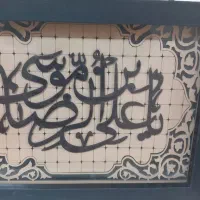 يا علي بن موسى الرضا